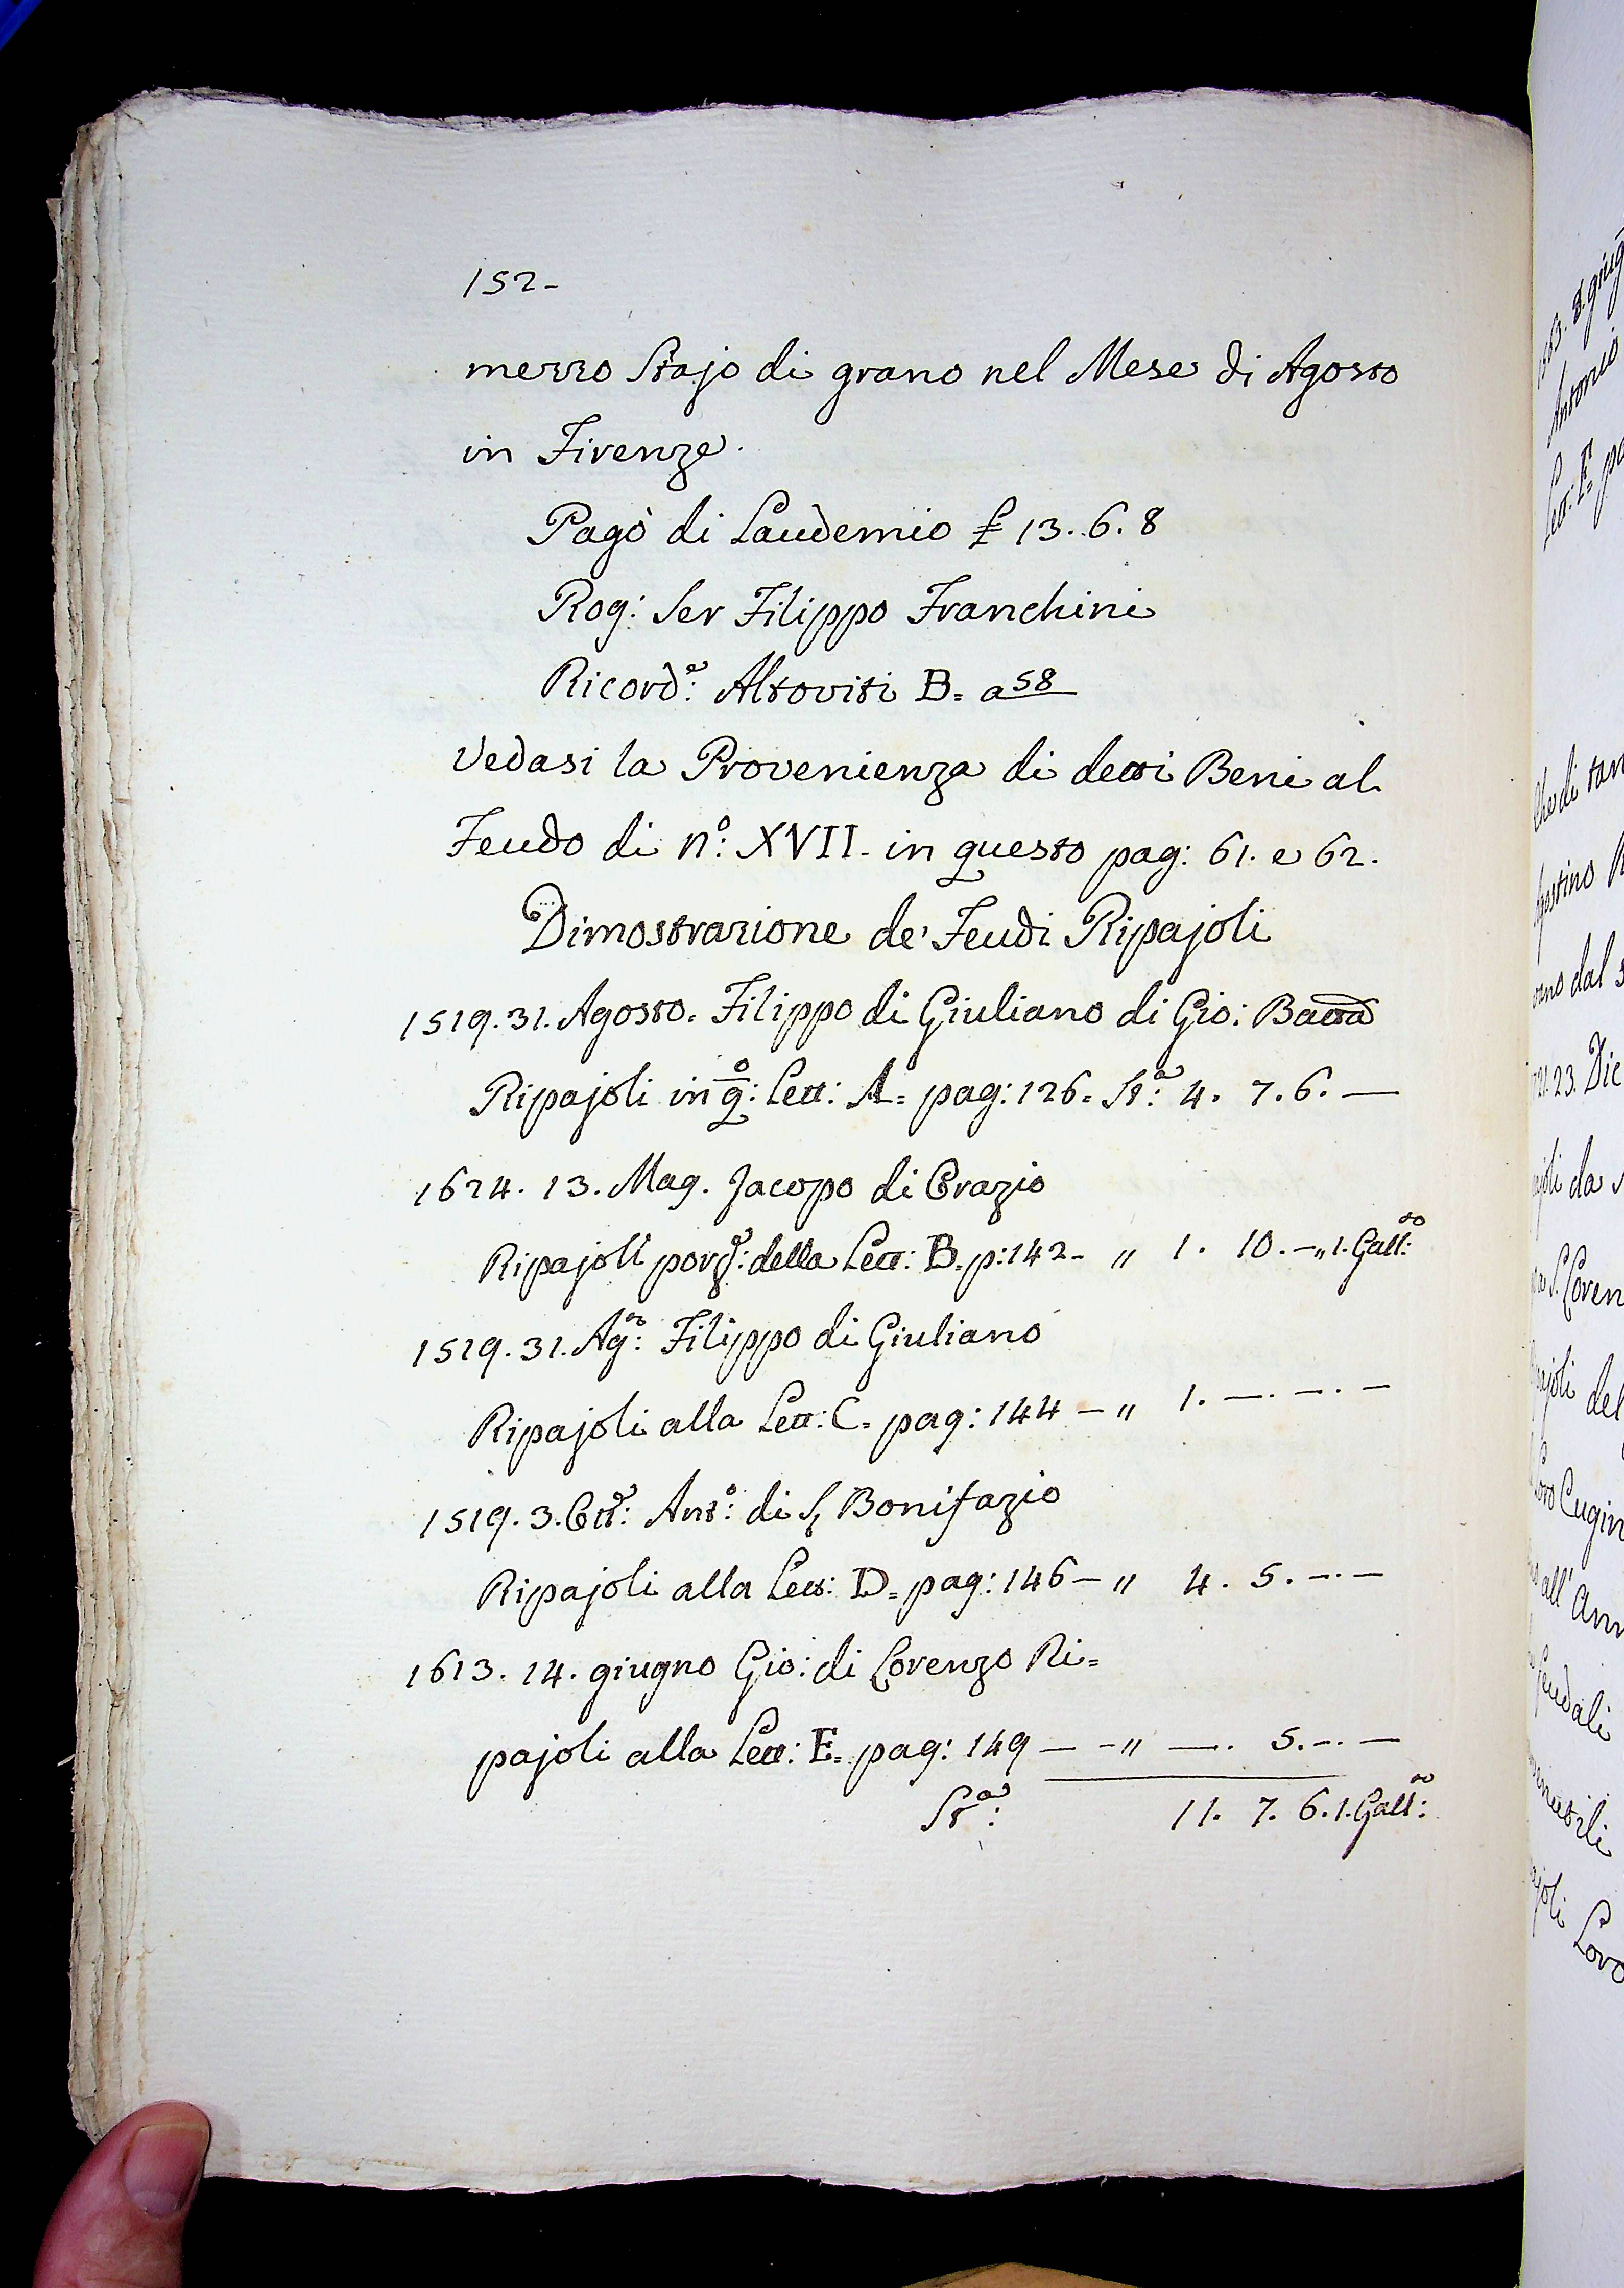 152-
mezzo Stajo di grano nel Mese di Agosto
in Firenze.
Pagò di Laudemio £ 13.6.8
Rog: Ser Filippo Franchini
Ricord.e: Altoviti B= a 58
Vedasi la Provenienza di detti Beni al
Feudo di n.o: XVII. in questo pag: 61. e 62.
Dimostrazione de' Feudi Ripajoli
1519. 31. Agosto. Filippo di Giuliano di Gio: Batta
Ripajoli in q.o: Lett: A= pag: 126= St.a: 4. 7. 6. —
1624. 13. Mag. Jacopo di Orazio
Ripajoli della Lett: B. p: 142- „ 1. 10. -„ 1. Gall:
1519. 31. Ag.o: Filippo di Giuliano
Ripajoli alla Lett: C= pag: 144 - „ 1. —. —. —
1519. 3. Ott.e: Ant.o: di S. Bonifazio
Ripajoli alla Lett: D= pag: 146 - „ 4. 5. —. —
1613. 14. giugno Gio: di Lorenzo Ri=
pajoli alla Lett: E= pag: 149 — - „ —. 5. —. —
St.a: 11. 7. 6. 1. Gall:
1563. 8. giug
Antonio
Lett: F= pa
dal
23. Dic
joli da
S. Loren
pajoli del
loro Cugin
all' Ann
feudali
joli Loro